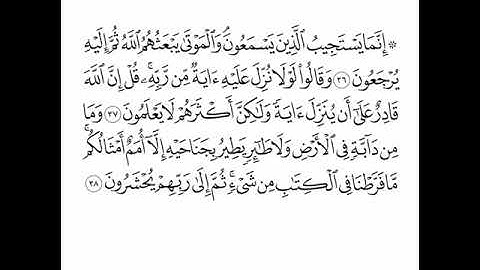 ۞ إِنَّمَا يَسْتَجِيبُ ٱلَّذِينَ يَسْمَعُونَۘ وَٱلْمَوْتَىٰ يَبْعَثُهُمُ ٱللَّهُ ثُمَّ إِلَيْهِ
يُرْجَعُونَ ٣٦ وَقَالُوا۟ لَوْلَا نُزِّلَ عَلَيْهِ ءَايَةٌ مِّن رَّبِّهِۦۚ قُلْ إِنَّ ٱللَّهَ
قَادِرٌ عَلَىٰٓ أَن يُنَزِّلَ ءَايَةً وَلَـٰكِنَّ أَكْثَرَهُمْ لَا يَعْلَمُونَ ٣٧ وَمَا
مِن دَآبَّةٍ فِى ٱلْأَرْضِ وَلَا طَـٰٓئِرٍ يَطِيرُ بِجَنَاحَيْهِ إِلَّآ أُمَمٌ أَمْثَالُكُمۚ
مَّا فَرَّطْنَا فِى ٱلْكِتَـٰبِ مِن شَىْءٍۚ ثُمَّ إِلَىٰ رَبِّهِمْ يُحْشَرُونَ ٣٨